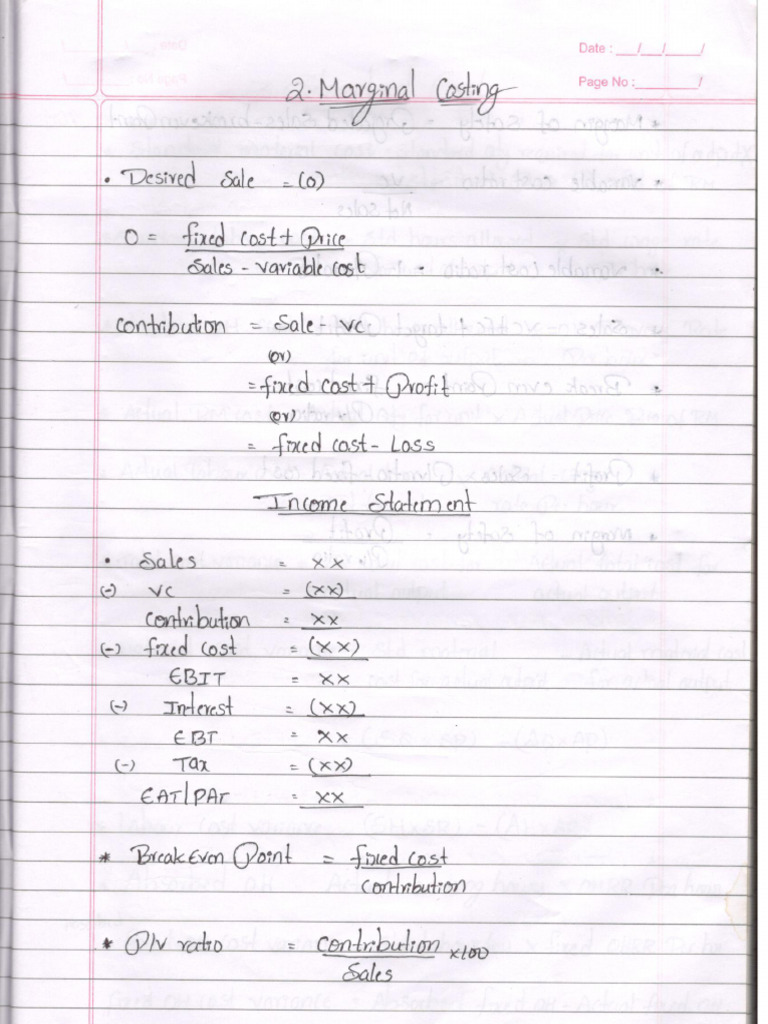 Date : ___/___/_____/
Page No :_________ /
2. Marginal Costing
• Desired Sale = (O)
O = fixed cost + Price
Sales - variable cost
contribution = Sale - VC
(or)
= fixed cost + Profit
(or)
= fixed cost - Loss
Income Statement
• Sales = xx
(-) VC = (xx)
Contribution = xx
(-) fixed cost = (xx)
EBIT = xx
(-) Interest = (xx)
EBT = xx
(-) Tax = (xx)
EAT/PAT = xx
* Break Even Point = fixed cost
contribution
* P/V ratio = contribution x100
Sales